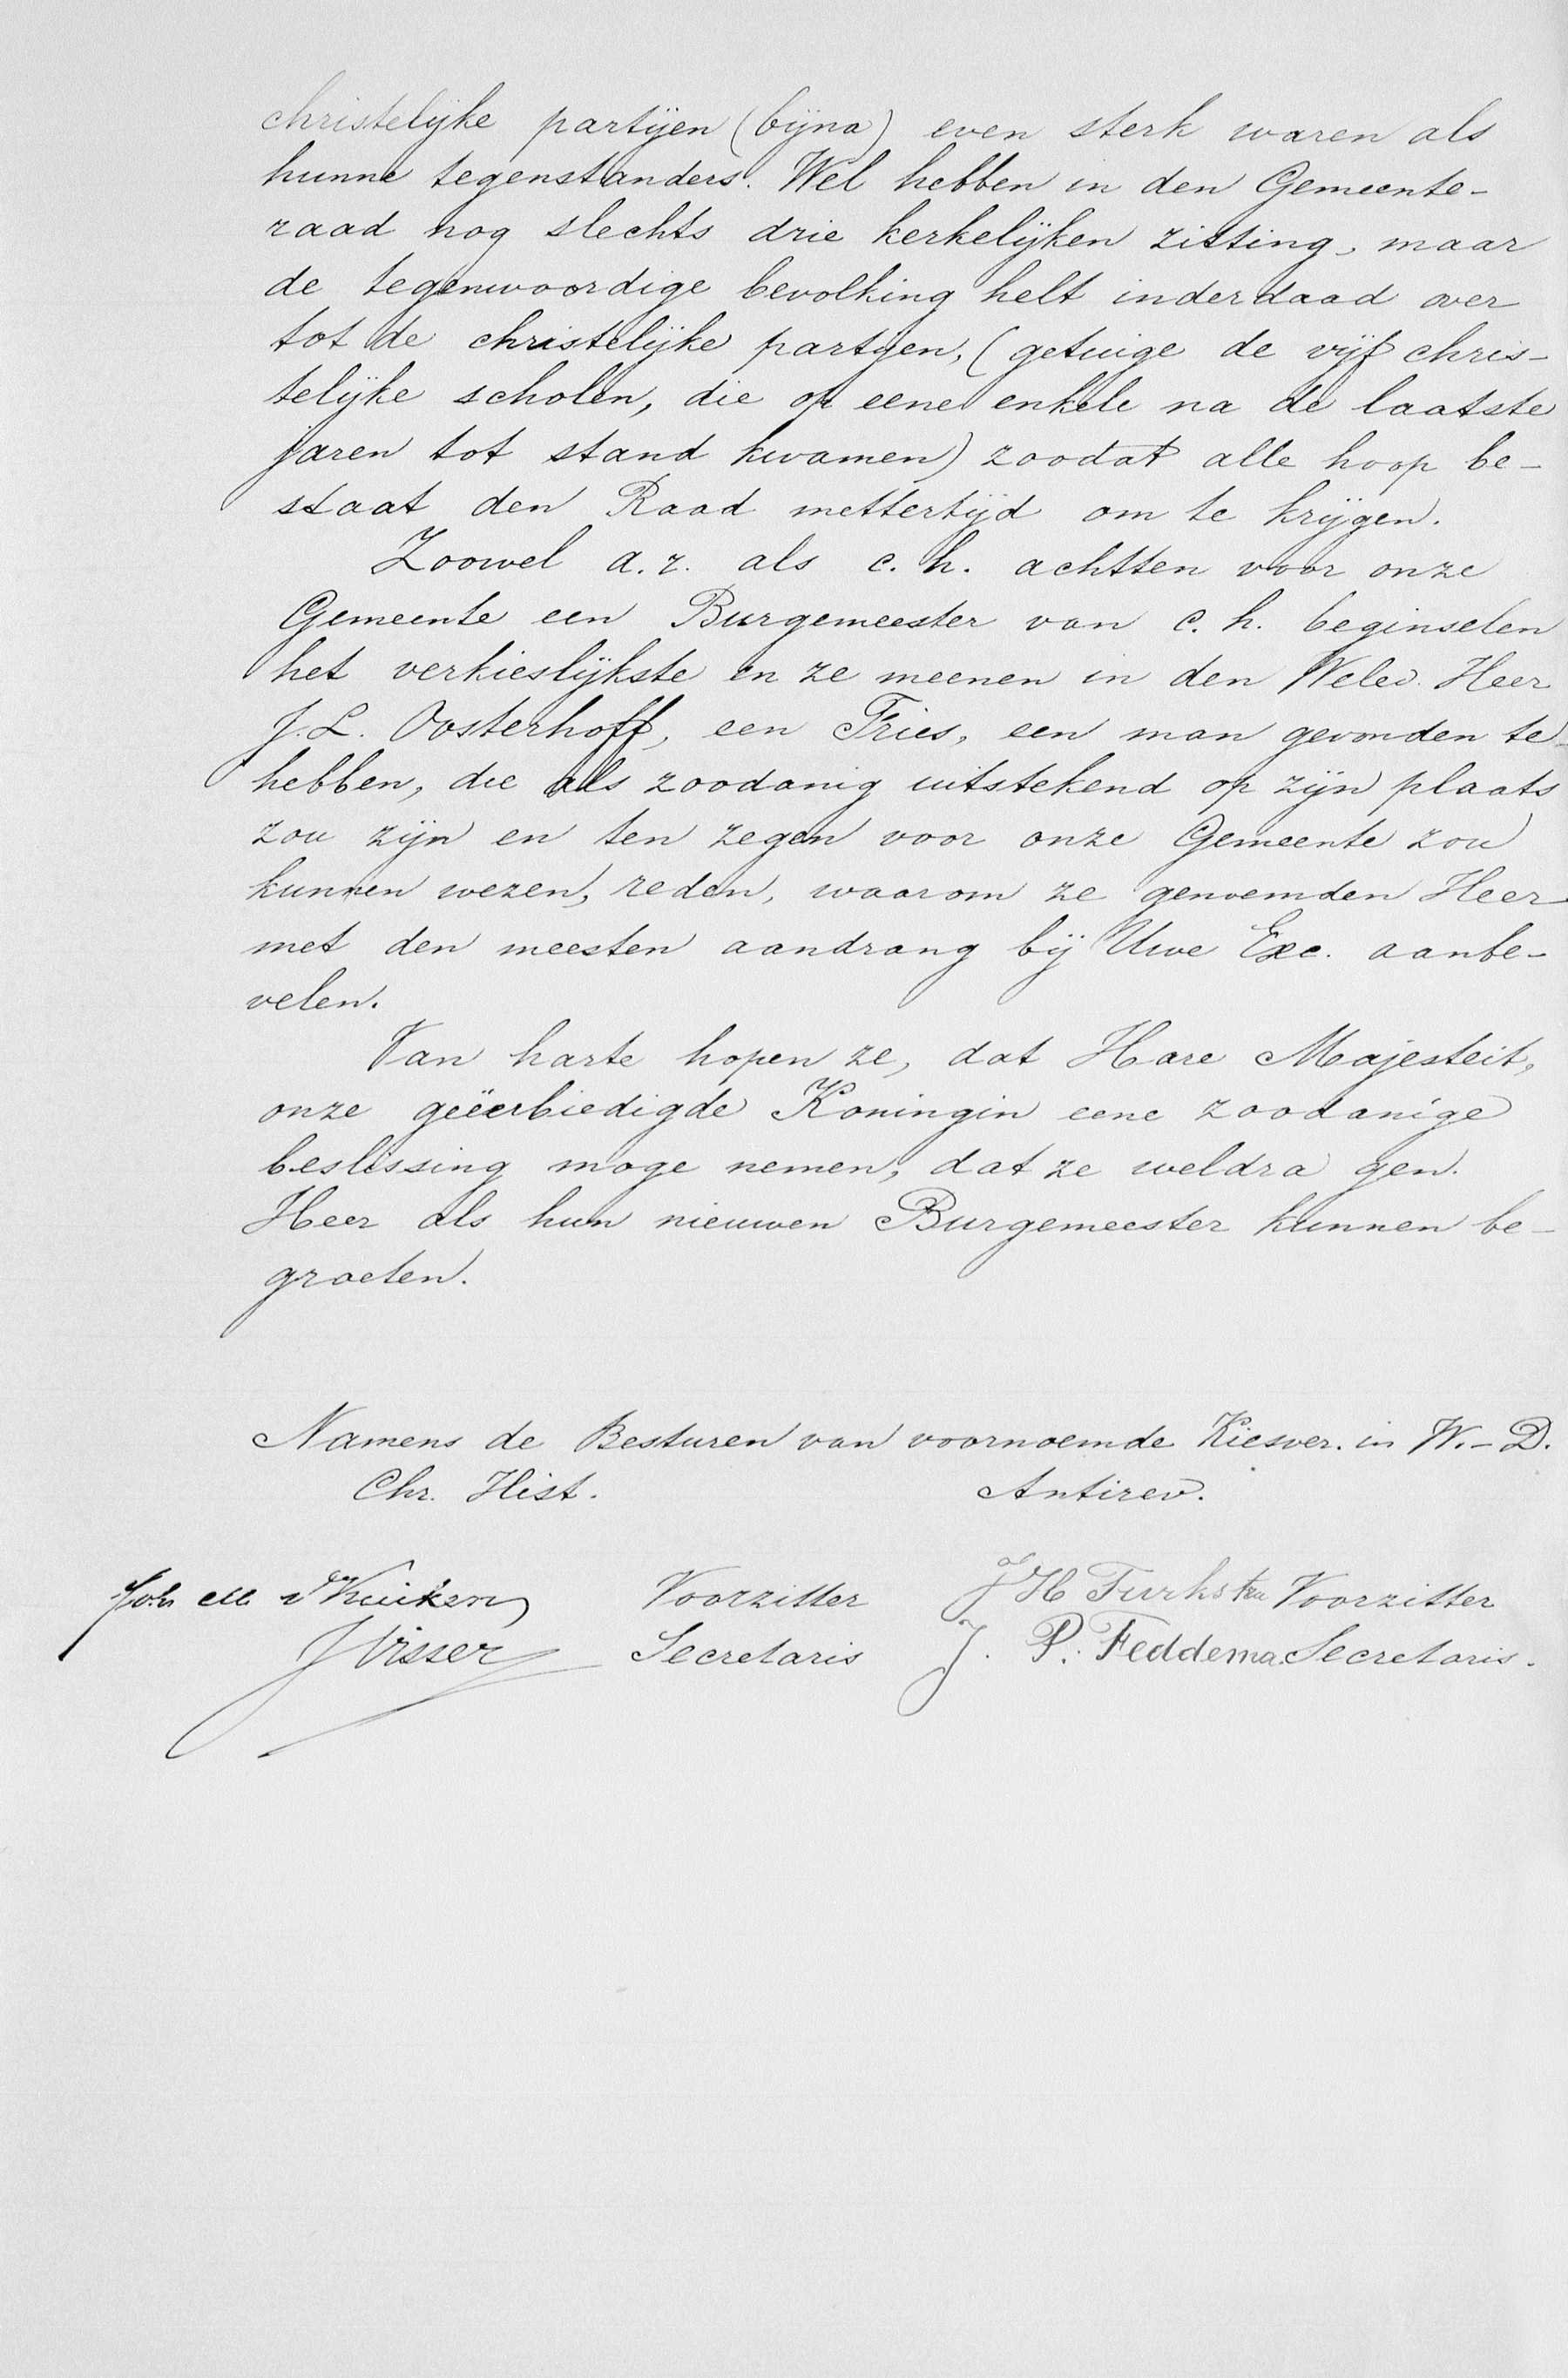 christelijke partijen (bijna) even sterk waren als
hunne tegenstanders. Wel hebben in den Gemeente-
raad nog slechts drie kerkelijken zitting, maar
de tegenwoordige bevolking helt inderdaad over
tot de christelijke partijen, (getuige de vijf chris-
telijke scholen, die op eene enkele na de laatste
jaren tot stand kwamen) zoodat alle hoop be-
staat den Raad mettertijd om te krijgen.
Zoowel a.r. als c.h. achtten voor onze
Gemeente een Burgemeester van c.h. beginselen
het verkieslijkste en ze meenen in den Weled. Heer
J.L. Oosterhoff, een Fries, een man gevonden te
hebben, die als zoodanig uitstekend op zijn plaats
zou zijn en ten zegen voor onze Gemeente zou
kunnen wezen, reden, waarom ze genoemden Heer
met den meesten aandrang bij Uwe Exc. aanbe-
velen.
Van harte hopen ze, dat Hare Majesteit,
onze geëerbiedigde Koningin eene zoodanige
beslissing moge nemen, dat ze weldra gen.
Heer als hun nieuwen Burgemeester kunnen be-
groeten.
Namens de Besturen van voornoemde Kiesver. in W.-D.
Chr. Hist. Antirev.
Joh Kuiken Voorzitter J H Turkstra Voorzitter
J Visser Secretaris J. P. Feddema Secretaris.